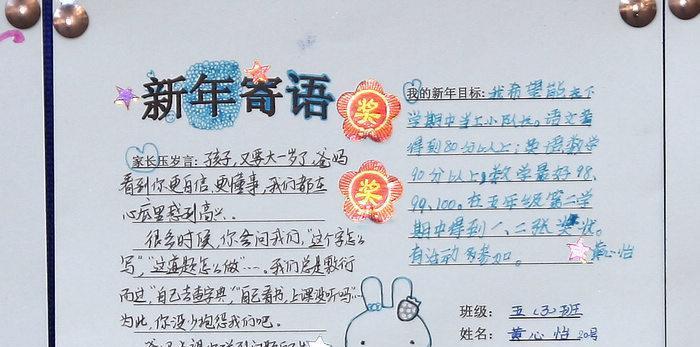 新年寄语
奖
奖
家长压岁言：孩子，又要大一岁了，爸妈
看到你更自信、更懂事，我们都在
心底里感到高兴。
很多时候，你会问我们，"这个字怎么
写"，"这道题怎么做"……。我们总是敷衍
而过"自己去查字典"，"自己看书，上课没听吗"……
为此，你没少抱怨我们吧。
我的新年目标：我希望能在下
学期中当上小队长。语文需
得到80分以上；英语数学
90分以上；数学最好98、
99、100。在五年级第二学
期中得到一、二张奖状。
有活动多参加。
黄心怡
班级：五（3）班
姓名：黄心怡 20号